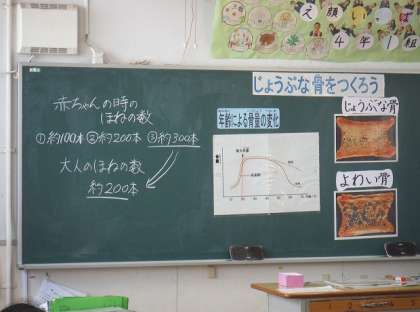 えがお
4年1組
じょうぶな骨をつくろう
赤ちゃんの時の
ほねの数
①約100本 ②約200本 ③約300本
大人のほねの数
約200本
年齢による骨量の変化
じょうぶな骨
よわい骨